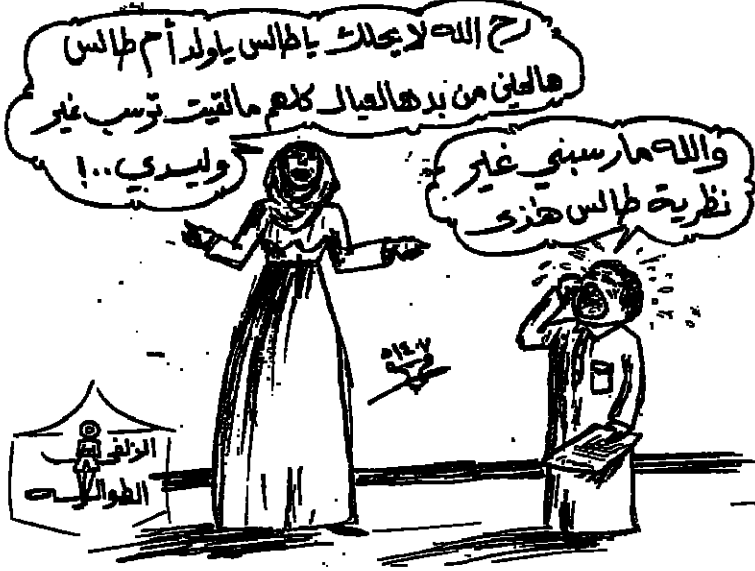 رح الله لا يحلك يا طالس يا ولد أم طالس
هالحين من بد هالعيال كلهم مالقيت ترسب غير
وليدي..!
والله مارسبني غير
نظرية طالس هذى
١٤٠٧هـ
الزلفي
الطوالـــه